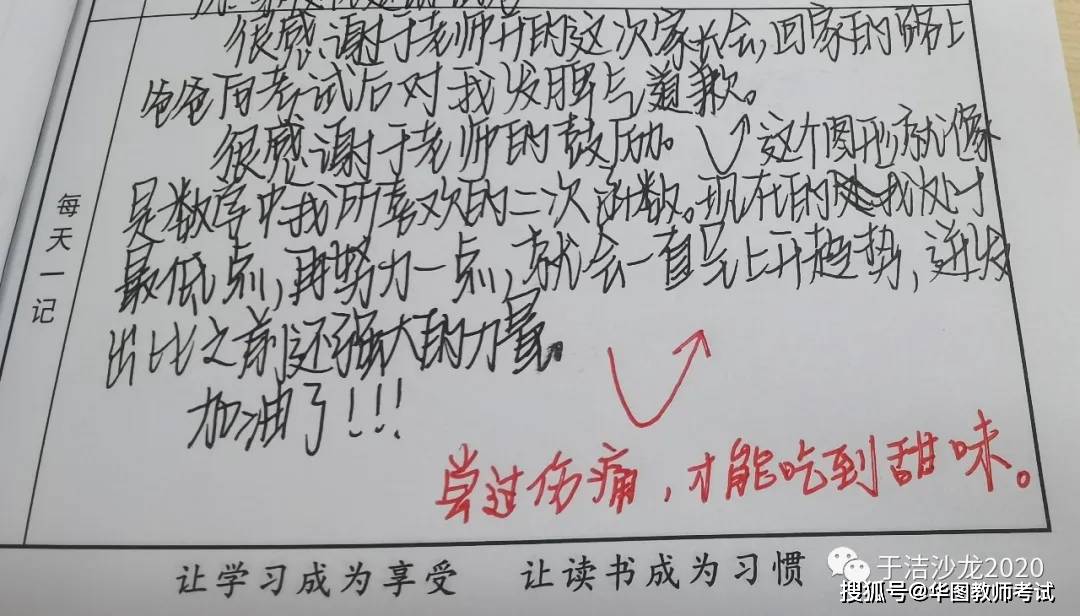 很感谢于老师开的这次家长会,回家的路上
爸爸向考试后对我发脾气道歉。
很感谢于老师的鼓励。 这个图形就像
是数学中我所喜欢的二次函数。现在的我处于
最低点,再努力一点,就会一直呈上升趋势,迸发
出比之前还强大的力量。
加油了!!!
尝过伤痛,才能吃到甜味。
每天一记
让学习成为享受 让读书成为习惯
于洁沙龙2020
搜狐号@华图教师考试